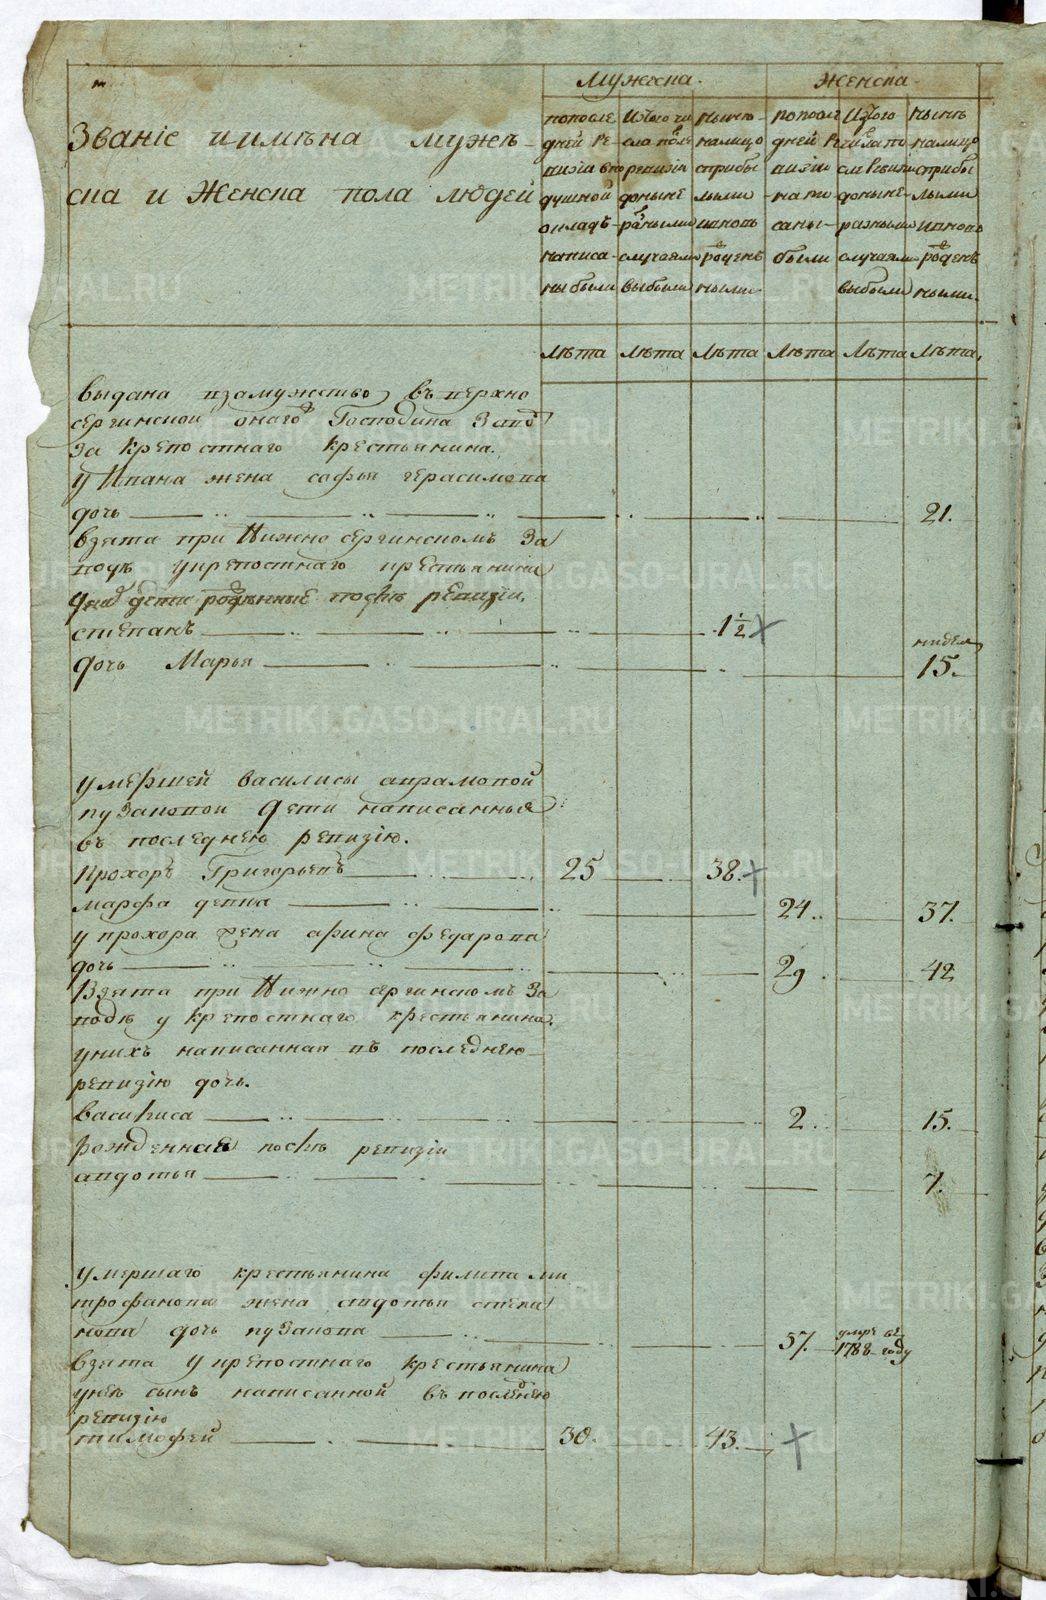 Мужеска.
Женска.
Званіе иимѣна мужѣ-
ска и Женска пола людей
попосле
дней Ре
визіи вно
душной
окладъ
написа-
ны были
Изтого чи
сла после
ревизіи
доныне
разными
случаями
выбыли
нынѣ
налицо
сприбы
лыми
ивновь
рожден
ными
попосл
дней Ре
визіи
напи
саны-
были
Изтого
числа по
сл Ревизи
доныне-
разными
случаями
выбыли
нынѣ
налицо
сприбы
лыми
ивновь
рожден
ными.
Лѣта Лѣта Лѣта Лѣта Лѣта Лѣта.
выдана взамужство въ верхно
сергинской онаго Господина Заво
за крепостнаго крестьянина.
у Ивана жена софья герасимова
дочь 21.
взята при Нижно сергинскомъ За
водѣ укрепостнаго крестьянина
унихъ дети рожденные послѣ ревизіи.
степанъ 1½
дочь Марья нидел 15.
умершей василисы аврамовой
пузановой дети написанныя
въ последнею ревизію.
Прохоръ Григорьевъ 25 38.
марфа девка 24. 37.
у прохора жена арина федарова
дочь 29 42
Взята при Нижно сергинскомъ За
водѣ у крепостнаго крестьянина.
унихъ написанная въ последнею
ревизію дочь.
василиса 2. 15.
рожденная послѣ ревизіи
авдотья 7.
умершаго крестьянина филипа ми
трофанова жена авдотья степа
нова дочь пузанова 57. умре въ 1788 году
взята укрепостнаго крестьянина
унее сынъ написанной въ последнею
ревизію
тимофей 30. 43.
METRIKI.GASO-URAL.RU